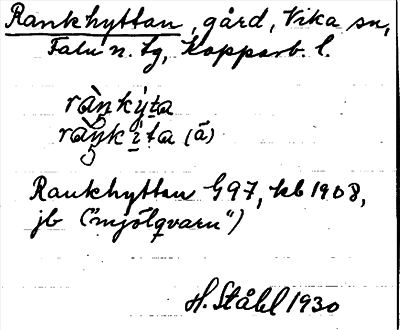 Rankhyttan, gård, Vika sn,
Falu n. tg, Kopparb. l.
ràŋky̍ta
ràŋki̍ta (ā)
Rankhyttan G97, kb 1908,
jb ("mjölqvarn")
H. Ståhl 1930